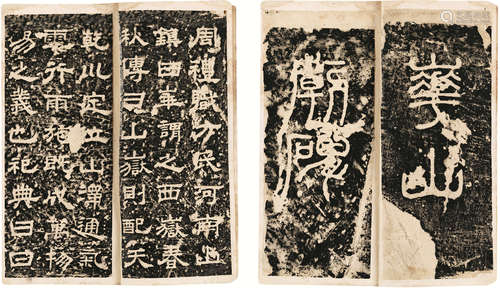 華山
廟碑
周禮職方氏河南山
鎮曰華謂之西嶽春
秋傳曰山嶽則配天
乾川定位山澤通氣
雲行雨施既成萬物
易之義也祀典曰日